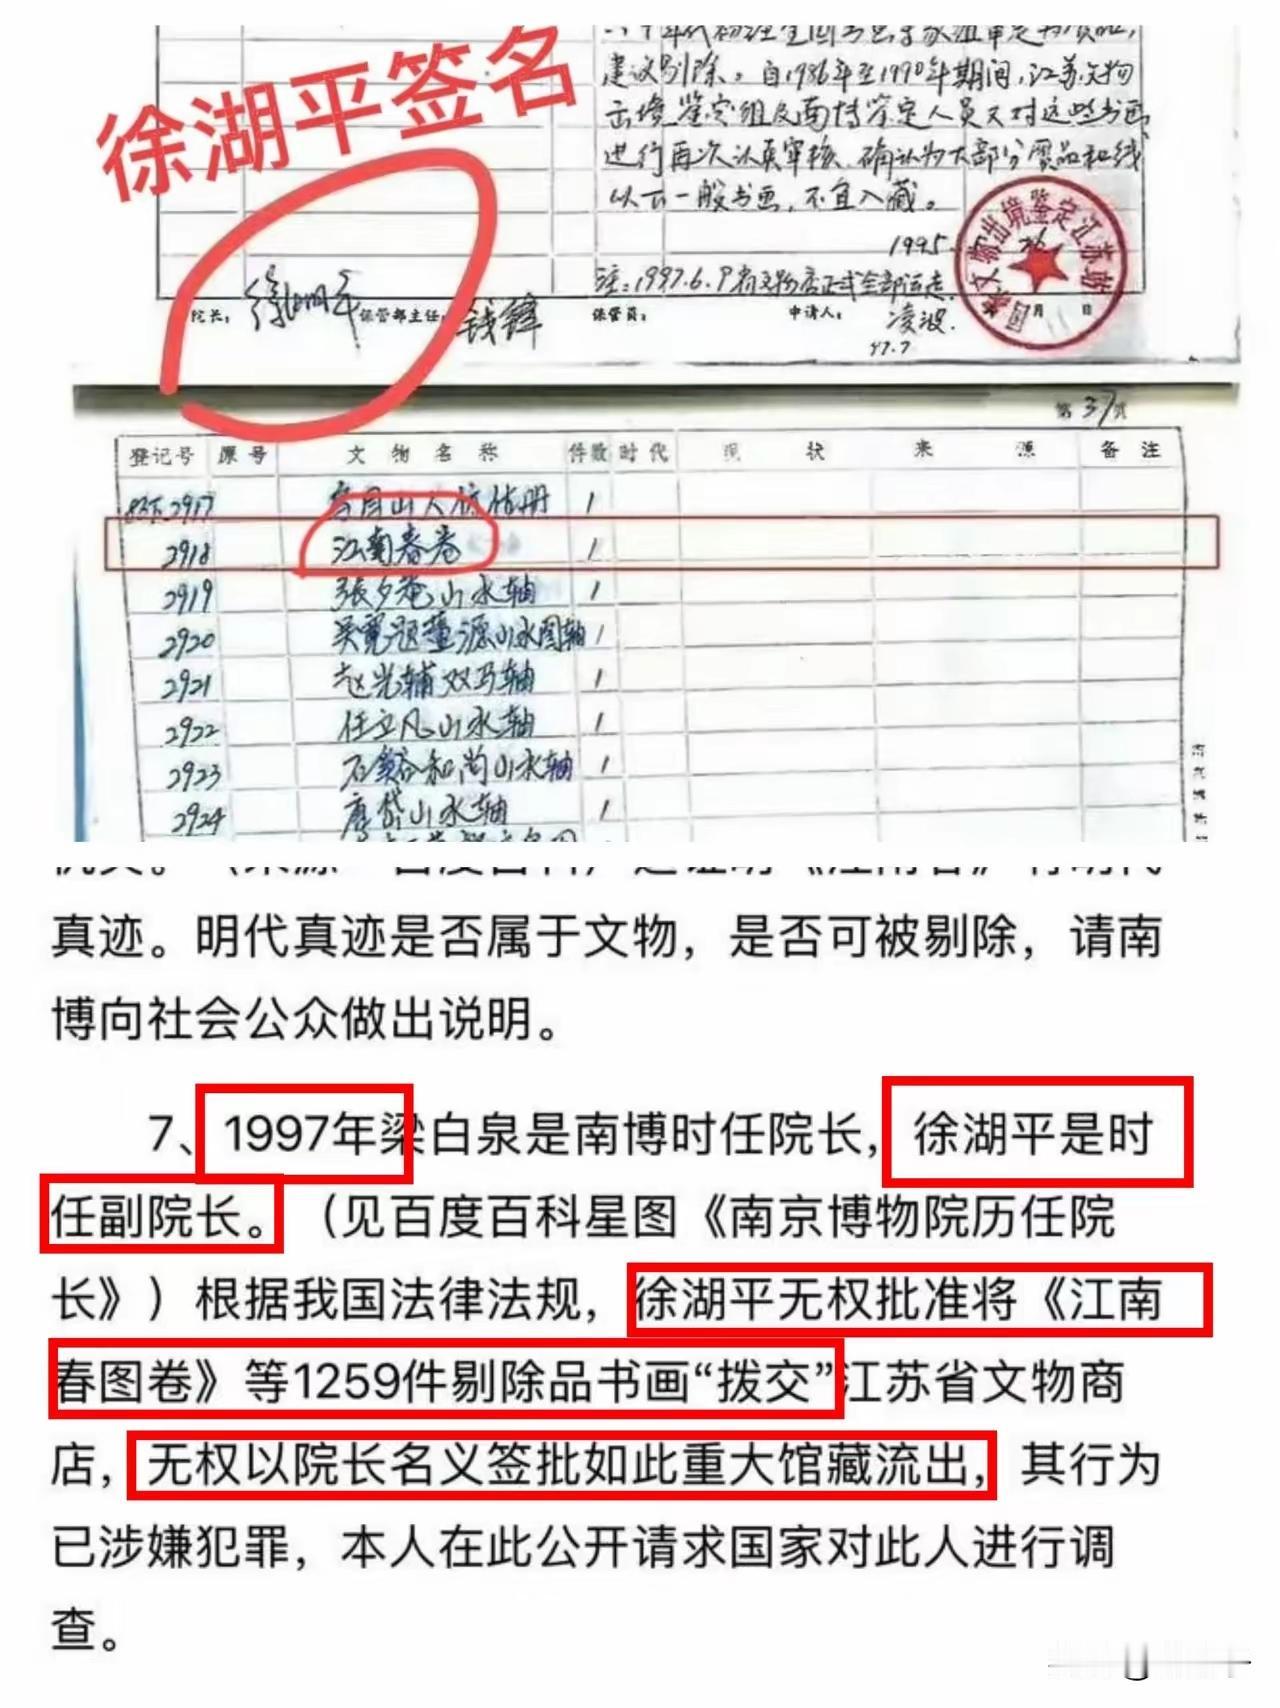 徐湖平签名
建议剔除。自1986年至1990年期间,江苏文物
出境鉴定组及南博鉴定人员又对这些书画
进行再次认真审核,确认为大部分赝品和线
以下一般书画,不宜入藏。
1995
国家文物出境鉴定江苏站
月 日
注:1997.6.9
院长: 徐湖平 保管部主任: 钱锋 保管员: 申请人: 凌波.
97.7
第37页
登记号 原号 文物名称 件数 时代 现状 来源 备注
2917 1
2918 江南春卷 1
2919 张夕庵山水轴 1
2920 吴宽题董源山水图轴 1
2921 赵光辅双马轴 1
2922 任立凡山水轴 1
2923 石溪和尚山水轴 1
2924 唐岱山水轴 1
真迹。明代真迹是否属于文物,是否可被剔除,请南
博向社会公众做出说明。
7、1997年梁白泉是南博时任院长,徐湖平是时
任副院长。(见百度百科星图《南京博物院历任院
长》)根据我国法律法规,徐湖平无权批准将《江南
春图卷》等1259件剔除品书画“拨交”江苏省文物商
店,无权以院长名义签批如此重大馆藏流出,其行为
已涉嫌犯罪,本人在此公开请求国家对此人进行调
查。